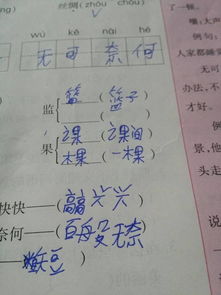 丝绸(zhōu chóu)
wú kě nài hé
无可奈何
监 篮 (篮子)
( )
果 课 (课间)
棵 (一棵)
快快——(高高兴兴)
奈何——(百般无奈)
豆)
了一顿。
嚷:大声
例句:
人家都睡
无可
办法,不
了才
例句
景,他
头走
说